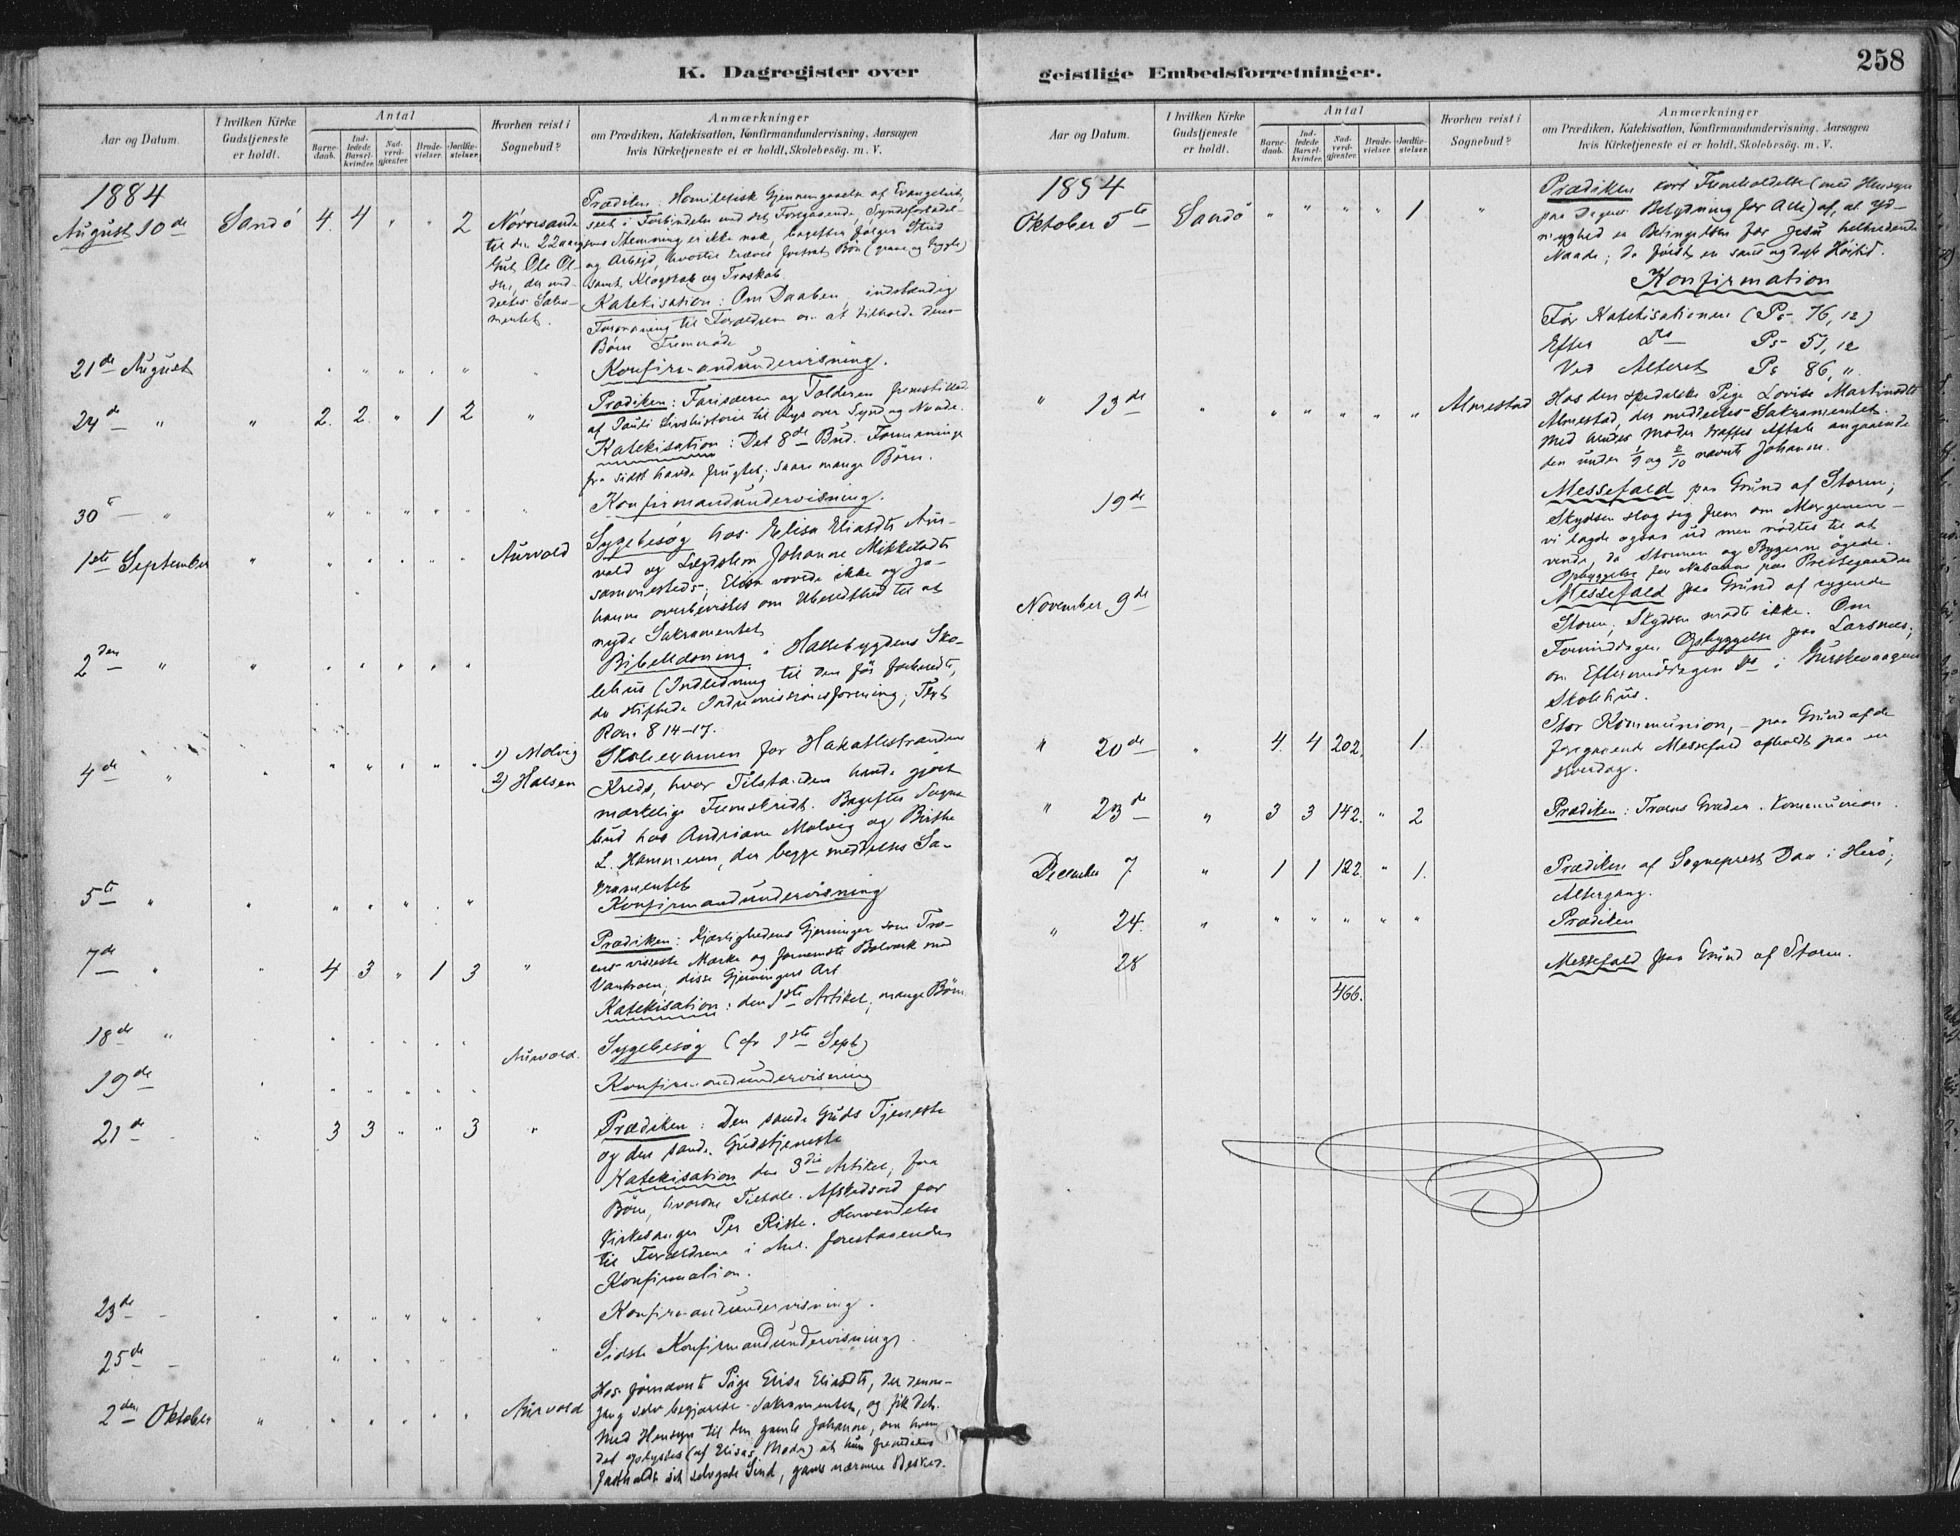 258
K. Dagregister over
geistlige Embedsforretninger.
Aar og Datum.
I hvilken Kirke Gudstjeneste er holdt.
Antal
Barnedaab.
Indledede Barselkvinder.
Nadverdgjester.
Brudevielser.
Jordfæstelser.
Hvorhen reist i Sognebud?
Anmærkninger
om Prædiken, Katekisation, Konfirmandundervisning, Aarsagen
hvis Kirketjeneste ei er holdt, Skolebesög. m. V.
1884
August 10de Sandö 4. 4 " " 2
Prædiken: Homiletisk Gjennemgaaelse af Evangeliet,
seet i Forbindelse med det Foregaaende,
Stemning er ikke nok, bagefter følger Strid
og Arbejd,
samt Klogskab og Troskab.
Katekisation: Om Daaben, indstændig
Formaning til Forældrene om at tilholde deres
Börn Fremmöde
21de August " " " " " Konfirmandundervisning.
24de " " 2. 2. " 1 2 "
Prædiken: Farisæeren og Tolderen fremstillede
af Pauli Livshistorie til Lys over Synd og Naade.
Katekisation: Det 8de Bud. Formaninge
fra sidst havde frugtet; svare mange Börn.
30te " " " " " " Konfirmandundervisning.
1ste September " " " " " " Aurvold
Sygebesög hos Elisa Eliasdtr Aurvold
og Lægdslem Johanne Mikkelsdtr
sammesteds; Elisa vovede ikke og Johanne
overbevistes om Uberedthed til at
nyde Sakramentet
2den " " " " " " "
Bibellæsning i Hallebygdens Skolehus
(Indledning til den för forberedte,
da stiftede Indremissionsforening; Text
Rom. 8 14-17.
4de " " " " " " " 1) Molvig
2) Halsen
Skoleexamen for Hakallestranden
Kreds, hvor Tilstanden havde gjort
mærkelige Fremskridt. Bagefter Sognebud
hos Andriane Molvig og Birthe
L. Hammeren, der begge meddeltes Sakramentet
5te " " " " " " Konfirmandundervisning
7de " " 4 3 " 1 3 "
Prædiken: Kjærlighedens Gjerninger som Troens
visseste Mærke og fornemste Bolværk mod
Vantroen, disse Gjerningers Art
Katekisation: den 1ste Artikel, mange Börn
18de " " " " " Aurvold. Sygebesög (cfr 1ste Sept)
19de " " " " " Konfirmandundervisning
21de " " 3 3 " " 3 "
Prædiken: Den sande Guds Tjeneste
og den sande Gudstjeneste
Katekisation den 3die Artikel, faa
Börn, hvorom Tiltale. Afskedsord for
Kirkesanger Per Riste. Henvendelse
til Forældrene i Anl. forestaaende
Konfirmation.
23de " " " " " " Konfirmandundervisning.
25de " " " " " Sidste Konfirmandundervisning.
2den Oktober " " " " " " Aurvold
Hos förnævnte Pige Elisa Eliasdtr, der denne
gang selv begjærede Sakramentet, og fik det.
Med Hensyn til den gamle Johanne, om hvem
det oplystes (af Elisas Moder) at hun fremdeles
Aar og Datum.
I hvilken Kirke Gudstjeneste er holdt.
Antal
Barnedaab.
Indledede Barselkvinder.
Nadverdgjester.
Brudevielser.
Jordfæstelser.
Hvorhen reist i Sognebud?
Anmærkninger
om Prædiken, Katekisation, Konfirmandundervisning, Aarsagen
hvis Kirketjeneste ei er holdt, Skolebesög. m. V.
1884
Oktober 5te Sandö " " " " 1 "
Prædiken kort Fremholdelse (med Hensyn
paa Dagens Betydning for Alle) af, at Ydmyghed
er Betingelsen for Jesu helbredende
Naade; da först en sand og dyb Höitid.
Konfirmation
Før Katekisationen (Ps 76, 12)
Efter Do Ps 51, 12
Ved Alteret Ps 86, "
" 13de " " " " " " Almestad
Hos den spedalske Pige Lovise Martinsdtr
Almestad, der meddeltes Sakramentet.
Med hendes Moder traffes Aftale angaaende
den under 1/9 og 2/10 nævnte Johanne.
19de
Messefald paa Grund af Storm;
Skydsen slog sig frem om Morgenen
vi lagde ogsaa ud men nödtes til at
vende, da Stormen og Bygerne ögede.
Opbyggelse for Naboerne paa Prestegaarden
November 9de
Messefald paa Grund af rygende
Storm, Skydsen mödte ikke. Om
Formiddagen Opbyggelse paa Larsnes;
om Eftermiddagen Do i Gurskevaagens
Skolehus.
" 20de " 4 4 202. 1.
Stor Kommunion, - paa Grund af de
foregaaende Messefald afholdt paa en
Hverdag.
" 23de " 3 3 142. " 2 Prædiken: Troens Grader. Kommunion.
December 7 " 1 1 122. " 1.
Prædiken af Sogneprest Daa i Herö;
Altergang.
" 24. " " " " " " Prædiken
28 Messefald paa Grund af Storm.
466.